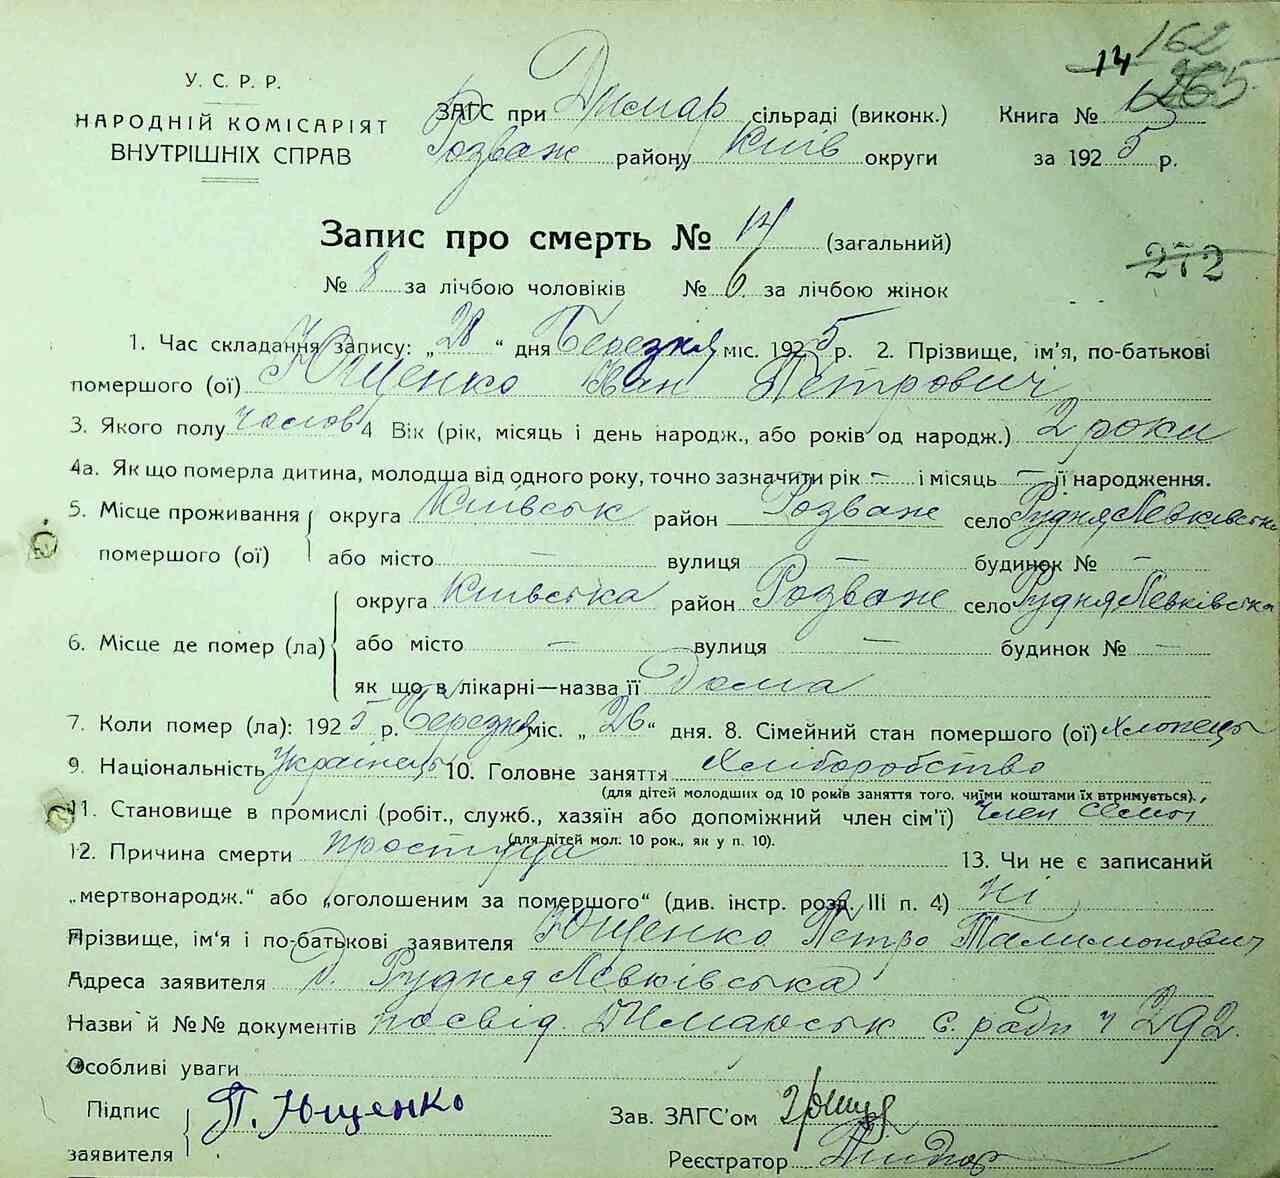 14 162
265
У. С. Р. Р.
НАРОДНІЙ КОМІСАРІЯТ
ВНУТРІШНІХ СПРАВ
ЗАГС при Димар сільраді (виконк.) Книга №
Розваж району Київ округи за 1925 р.
Запис про смерть № 14 (загальний)
272
№ 8 за лічбою чоловіків № 6 за лічбою жінок
1. Час складання запису: „28“ дня Березня міс. 1925 р. 2. Прізвище, ім’я, по-батькові
помершого (ої) Ющенко Іван Петрович
3. Якого полу чолов 4 Вік (рік, місяць і день народж., або років од народж.) 2 роки
4а. Як що померла дитина, молодша від одного року, точно зазначити рік — і місяць — її народження.
5. Місце проживання помершого (ої) округа Київськ район Розваж село Рудня Левківська
або місто — вулиця — будинок № —
6. Місце де помер (ла) округа Київська район Розваж село Рудня Левківська
або місто — вулиця — будинок № —
як що в лікарні—назва її Дома
7. Коли помер (ла): 1925 р. Березня міс. „26“ дня. 8. Сімейний стан помершого (ої) Хлопець
9. Національність Українець 10. Головне заняття Хліборобство
(для дітей молодших од 10 років заняття того, чиїми коштами їх втримується).
11. Становище в промислі (робіт., служб., хазяїн або допоміжний член сім’ї) Член семьи
(для дітей мол. 10 рок., як у п. 10).
12. Причина смерти простуда 13. Чи не є записаний
„мертвонародж.“ або „оголошеним за помершого“ (див. інстр. розд. III п. 4) Ні
Прізвище, ім’я і по-батькові заявителя Ющенко Петро Талимонович
Адреса заявителя с. Рудня Левківська
Назви й №№ документів посвід. Димарськ с. ради ч 292.
Особливі уваги
Підпис заявителя П. Ющенко
Зав. ЗАГС’ом
Реєстратор